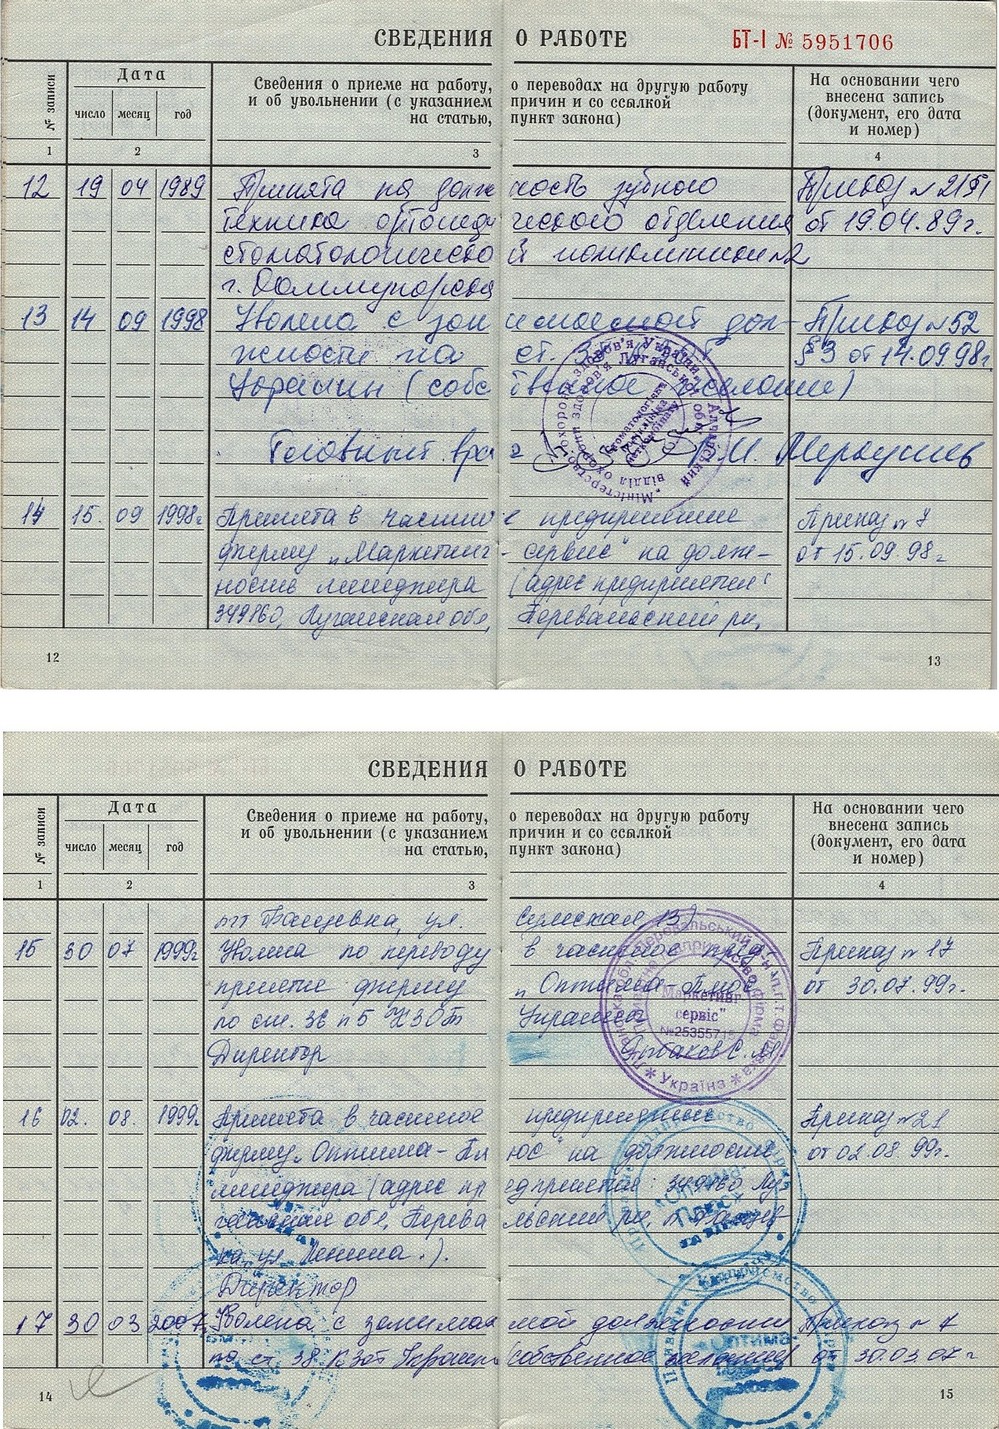 СВЕДЕНИЯ О РАБОТЕ БТ-I № 5951706
№ записи
Дата
число месяц год
Сведения о приеме на работу, о переводах на другую работу
и об увольнении (с указанием причин и со ссылкой
на статью, пункт закона)
На основании чего
внесена запись
(документ, его дата
и номер)
1 2 3 4
12 19 04 1989 Принята на должность зубного Приказ №
техника ортопедического отделения от 19.04.89г.
стоматологической поликлиники №2
г. Коммунарска
13 14 09 1998 Уволена с занимаемой дол- Приказ №52
жности по ст. §3 от 14.09.98г.
Украины (собственное желание)
Головный врач
14 15. 09 1998г Принята в частное предприятие Приказ № 7
фирму „Маркетинг-сервис" на долж- от 15.09.98г
ность менеджера (адрес предприятия:
349160, Луганская обл, Перевальский рн,
12 13
СВЕДЕНИЯ О РАБОТЕ
№ записи
Дата
число месяц год
Сведения о приеме на работу, о переводах на другую работу
и об увольнении (с указанием причин и со ссылкой
на статью, пункт закона)
На основании чего
внесена запись
(документ, его дата
и номер)
1 2 3 4
пгт Фащевка, ул. 13)
15 30 07 1999г Уволена по переводу в частное Приказ №17
фирму „Оптима-Плюс" от 30.07.99г.
по ст. 36 п 5 КЗОТ Украины
Директор
Маркетинг
сервіс"
Україна
16 02. 08. 1999г Принята в частное предприятие Приказ №21
фирму „Оптима-Плюс" на должность от 02.08.99г.
менеджера (адрес предприятия: 349160 Лу-
ганская обл, Перевальский рн, п. Фащев
ка ул Ленина.).
Директор
17 30 03 2007 Уволена с занимаемой должности Приказ № 7
по ст. 38 КЗОТ Украины (собственное желание) от 30.03.07г
14 15